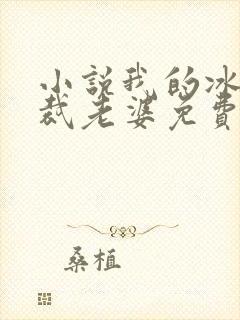 小説我的冰
裁老婆免費
桑植